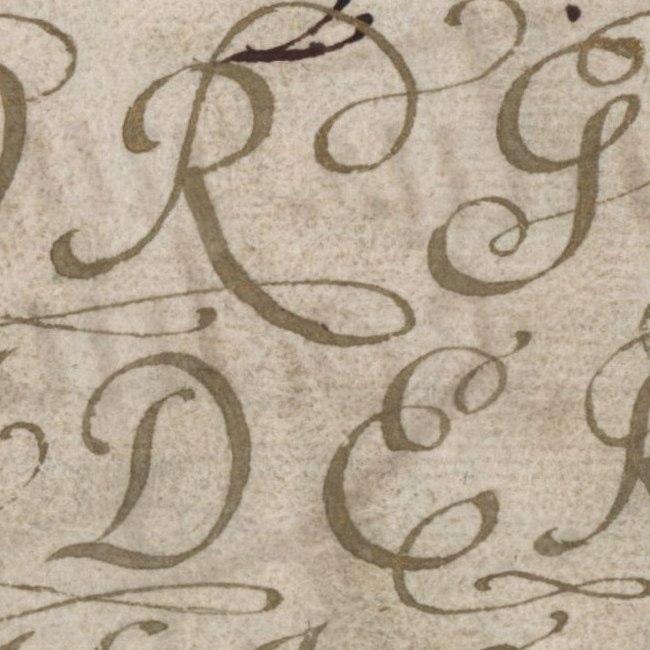 R G
D E